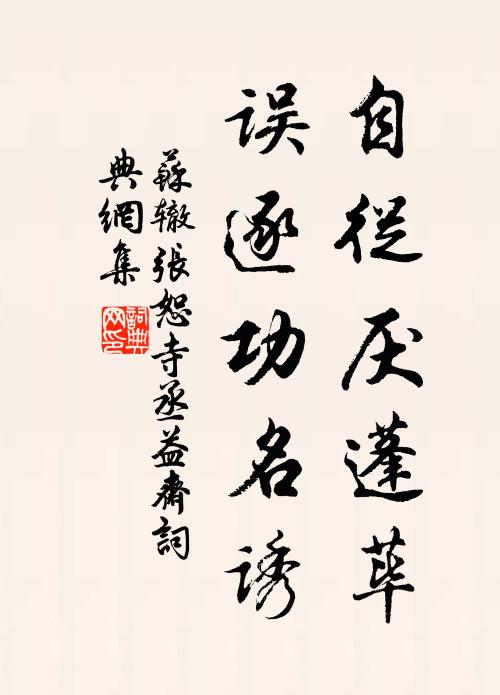 自从厌蓬荜
误逐功名诱
蘇辙張恕寺丞益齋詞
典網集
詞典网印